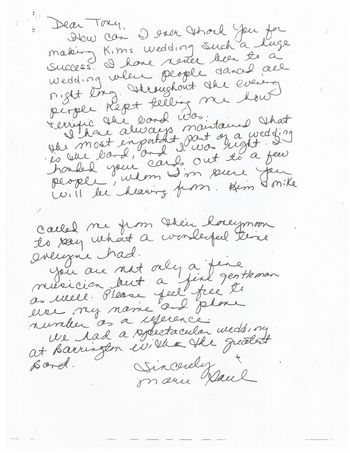 Dear Tony,
How can I ever thank you for
making Kims wedding such a huge
success. I have never been to a
wedding where people danced all
night long. Throughout the evening
people kept telling me how
terrific the band was.
I have always maintained that
the most important part of a wedding
is the band, and I was right. I
handed your cards out to a few
people, whom I'm sure you
will be hearing from. Kim & Mike
called me from their honeymoon
to say what a wonderful time
everyone had.
You are not only a fine
musician but a fine gentleman
as well. Please feel free to
use my name and phone
number as a reference.
We had a spectacular wedding
at Barrington with the greatest
Band.
Sincerely
Marie